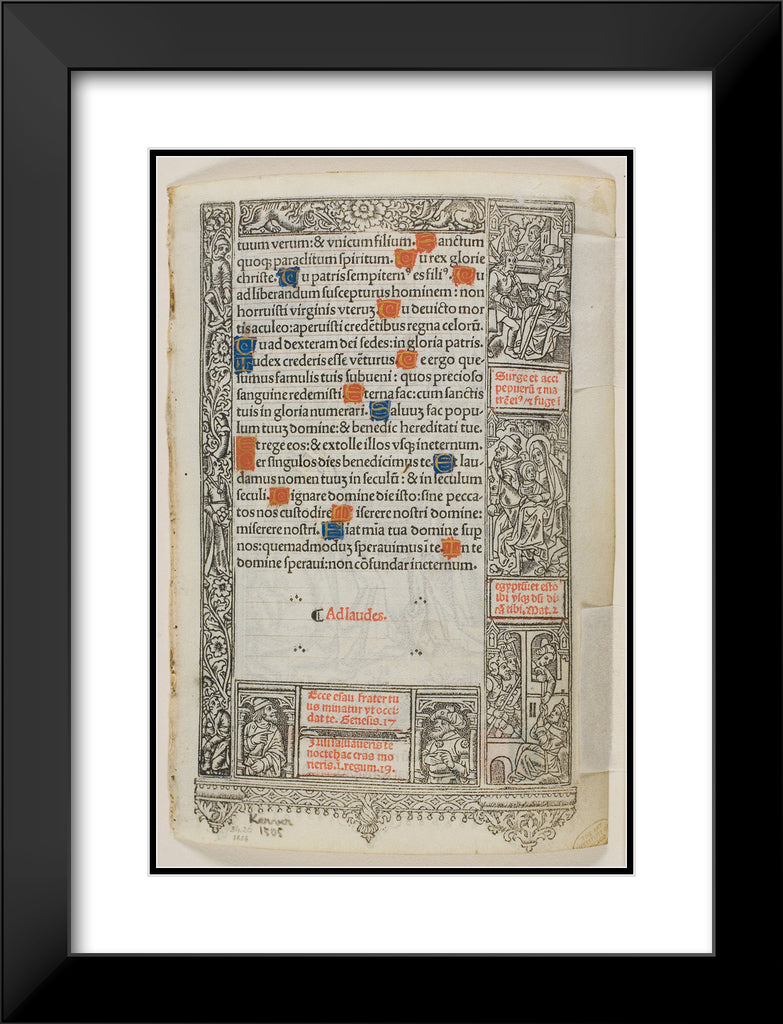 tuum verum: & vnicum filium. Sanctum
quoqꝫ paraclitum spiritum. Tu rex glorie
christe. Tu patris sempitern⁹ es fili⁹. Tu
ad liberandum suscepturus hominem: non
horruisti virginis vteruꝫ. Tu deuicto mor
tis aculeo: aperuisti credētibus regna celorū.
Tu ad dexteram dei sedes: in gloria patris.
Iudex crederis esse vēturus. Te ergo que-
sumus famulis tuis subueni: quos precioso
sanguine redemisti. Eterna fac: cum sanctis
tuis in gloria numerari. Saluuꝫ fac popu
lum tuuꝫ domine: & benedic hereditati tue.
Et rege eos: & extolle illos vsqꝫ ineternum.
Per singulos dies benedicimus te. Et lau-
damus nomen tuuꝫ in seculū: & in seculum
seculi. Dignare domine die isto: sine pecca-
to nos custodire. Miserere nostri domine:
miserere nostri. Fiat mīa tua domine sup
nos: quemadmoduꝫ sperauimus i te. In te
domine speraui: non cōfundar ineternum.
¶ Ad laudes.
Surge et acci
pe puerū ⁊ ma
trē ei⁹ / ⁊ fuge i
egyptū: et esto
ibi vsqꝫ dū di-
cā tibi. Mat. 2
Ecce esau frater tu
us minatur vt occi-
dat te. Genesis. 17
Nisi saluaueris te
nocte hac cras mo
rieris. i. regum. 19.
Kerver
1505